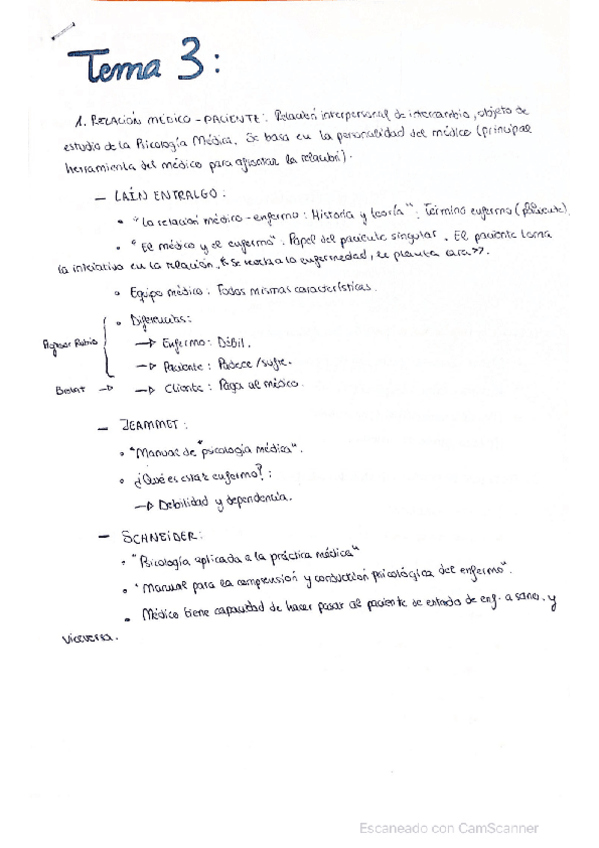 Tema 3:
1. RELACIÓN MÉDICO - PACIENTE: Relación interpersonal de intercambio, objeto de
estudio de la Psicología Médica. Se basa en la personalidad del médico (principal
herramienta del médico para afrontar la relación).
- LAÍN ENTRALGO:
• "La relación médico - enfermo: Historia y teoría": Término enfermo (paciente).
• "El médico y el enfermo": Papel del paciente singular. El paciente toma
la iniciativa en la relación. Se a la enfermedad, le planta cara>>.
• Equipo médico: Todos mismas características.
• Diferencias:
Profesor Rubio
→ Enfermo: Débil.
→ Paciente: Padece/sufre.
→ → Cliente: Paga al médico.
- JEAMMET:
• "Manual de psicología médica".
• ¿Qué es estar enfermo?:
→ Debilidad y dependencia.
- SCHNEIDER:
• "Psicología aplicada a la práctica médica"
• "Manual para la comprensión y conducción psicológica del enfermo".
• Médico tiene capacidad de hacer pasar al paciente de estado de enf. a sano, y
viceversa.
Escaneado con CamScanner